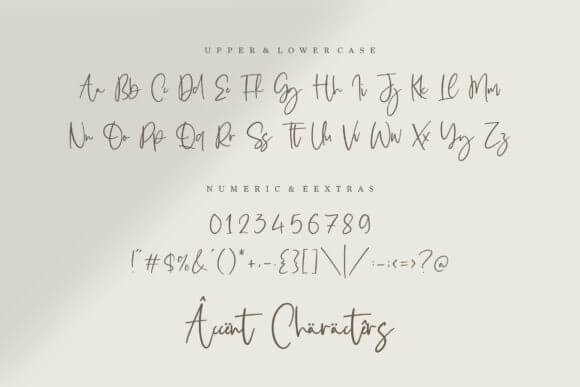 UPPER & LOWERCASE
Aa Bb Cc Dd Ee Ff Gg Hh Ii Jj Kk Ll Mm
Nn Oo Pp Qq Rr Ss Tt Uu Vv Ww Xx Yy Zz
NUMERIC & EEXTRAS
0123456789
!"#$%&'()*+,-.{}[]\|/:-;<=>?@
Âccënt Chäräctêrs